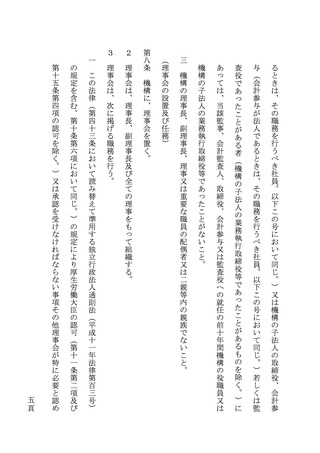 るときは、その職務を行うべき社員。以下この号において同じ。）又は機構の子法人の取締役、会計参
与（会計参与が法人であるときは、その職務を行うべき社員。以下この号において同じ。）若しくは監
査役であったことがある者（機構の子法人の業務執行取締役等であったことがあるものを除く。）に
あっては、当該監事、会計監査人、取締役、会計参与又は監査役への就任の前十年間機構の役職員又は
機構の子法人の業務執行取締役等であったことがないこと。
三　機構の理事長、副理事長、理事又は重要な職員の配偶者又は二親等内の親族でないこと。
（理事会の設置及び任務）
第八条　機構に、理事会を置く。
２　理事会は、理事長、副理事長及び全ての理事をもって組織する。
３　理事会は、次に掲げる職務を行う。
一　この法律（第四十三条において読み替えて準用する独立行政法人通則法（平成十一年法律第百三号）
の規定を含む。第十条第六項において同じ。）の規定により厚生労働大臣の認可（第十一条第二項及び
第十五条第四項の認可を除く。）又は承認を受けなければならない事項その他理事会が特に必要と認め
五頁